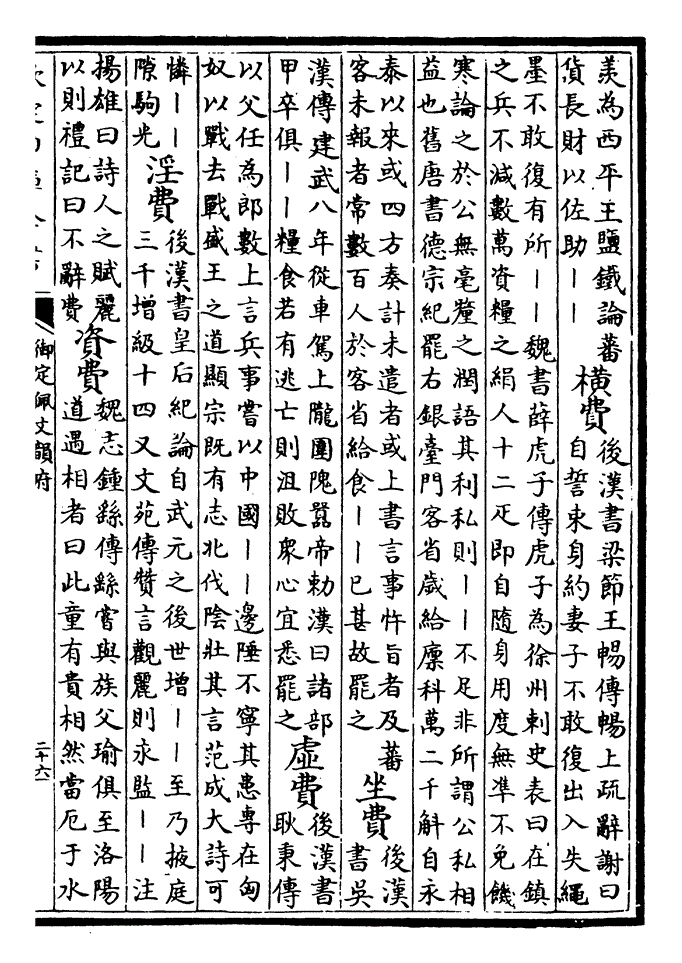 羡為西平王鹽鐵論蕃
貨長財以佐助｜｜
橫費
後漢書梁節王暢傳暢上疏辭謝曰
自誓束身約妻子不敢復出入失繩
墨不敢復有所｜｜魏書薛虎子傳虎子為徐州刺史表曰在鎮
之兵不減數萬資糧之絹人十二疋即自隨身用度無準不免饑
寒論之於公無毫釐之潤語其利私則｜｜不足非所謂公私相
益也舊唐書德宗紀罷右銀臺門客省歲給廪科萬二千斛自永
泰以來或四方奏計未遣者或上書言事忤旨者及蕃
客未報者常數百人於客省給食｜｜已甚故罷之
坐費
後漢
書吳
漢傳建武八年從車駕上隴圍隗囂帝勅漢曰諸部
甲卒俱｜｜糧食若有逃亡則沮敗衆心宜悉罷之
虛費
後漢書
耿秉傳
以父任為郎數上言兵事嘗以中國｜｜邊陲不寧其患專在匈
奴以戰去戰盛王之道顯宗既有志北伐陰壯其言范成大詩可
憐｜｜
隙駒光
淫費
後漢書皇后紀論自武元之後世增｜｜至乃掖庭
三千增級十四又文苑傳贊言觀麗則永監｜｜注
揚雄曰詩人之賦麗
以則禮記曰不辭費
資費
魏志鍾繇傳繇嘗與族父瑜俱至洛陽
道遇相者曰此童有貴相然當厄于水
御定佩文韻府
二十六